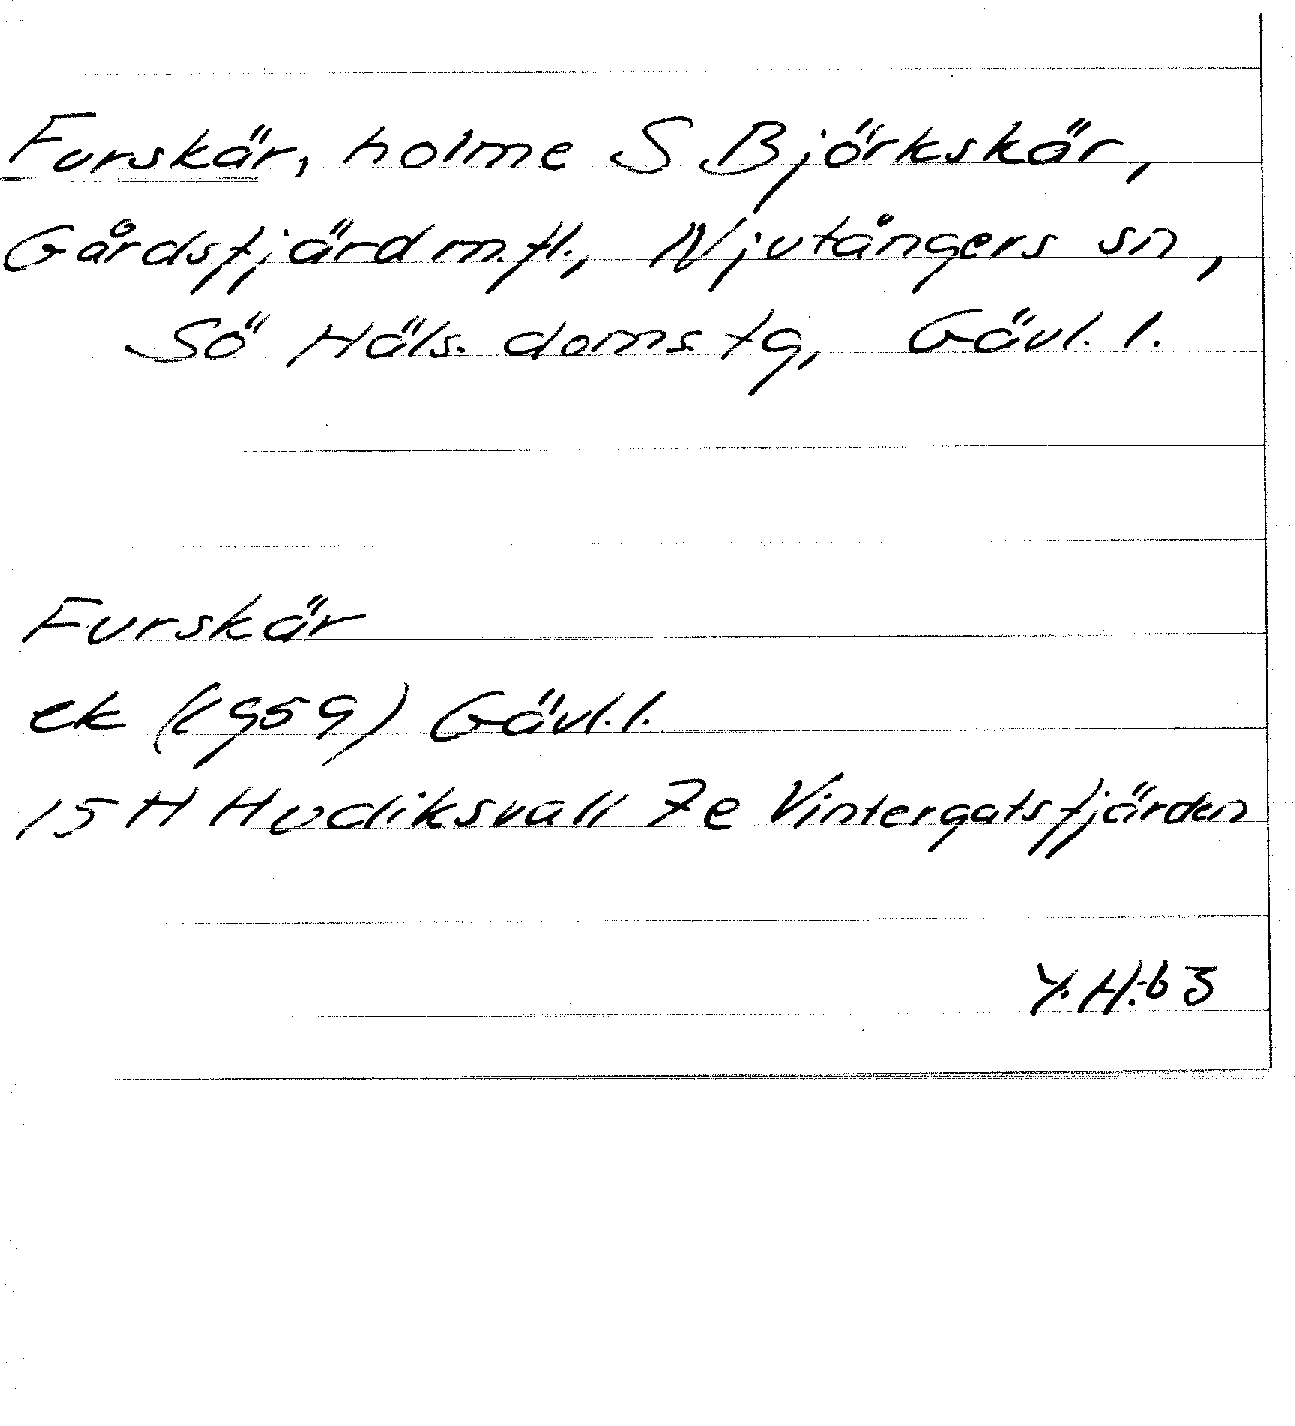 Furskär, holme S Björkskär,
Gårdsfjärd m.fl., Njutångers sn,
Sö Häls. doms tg, Gävl. l.
Furskär
ek (1959) Gävl. l.
15 H Hudiksvall 7e Vintergatsfjärden
Y.H.-63